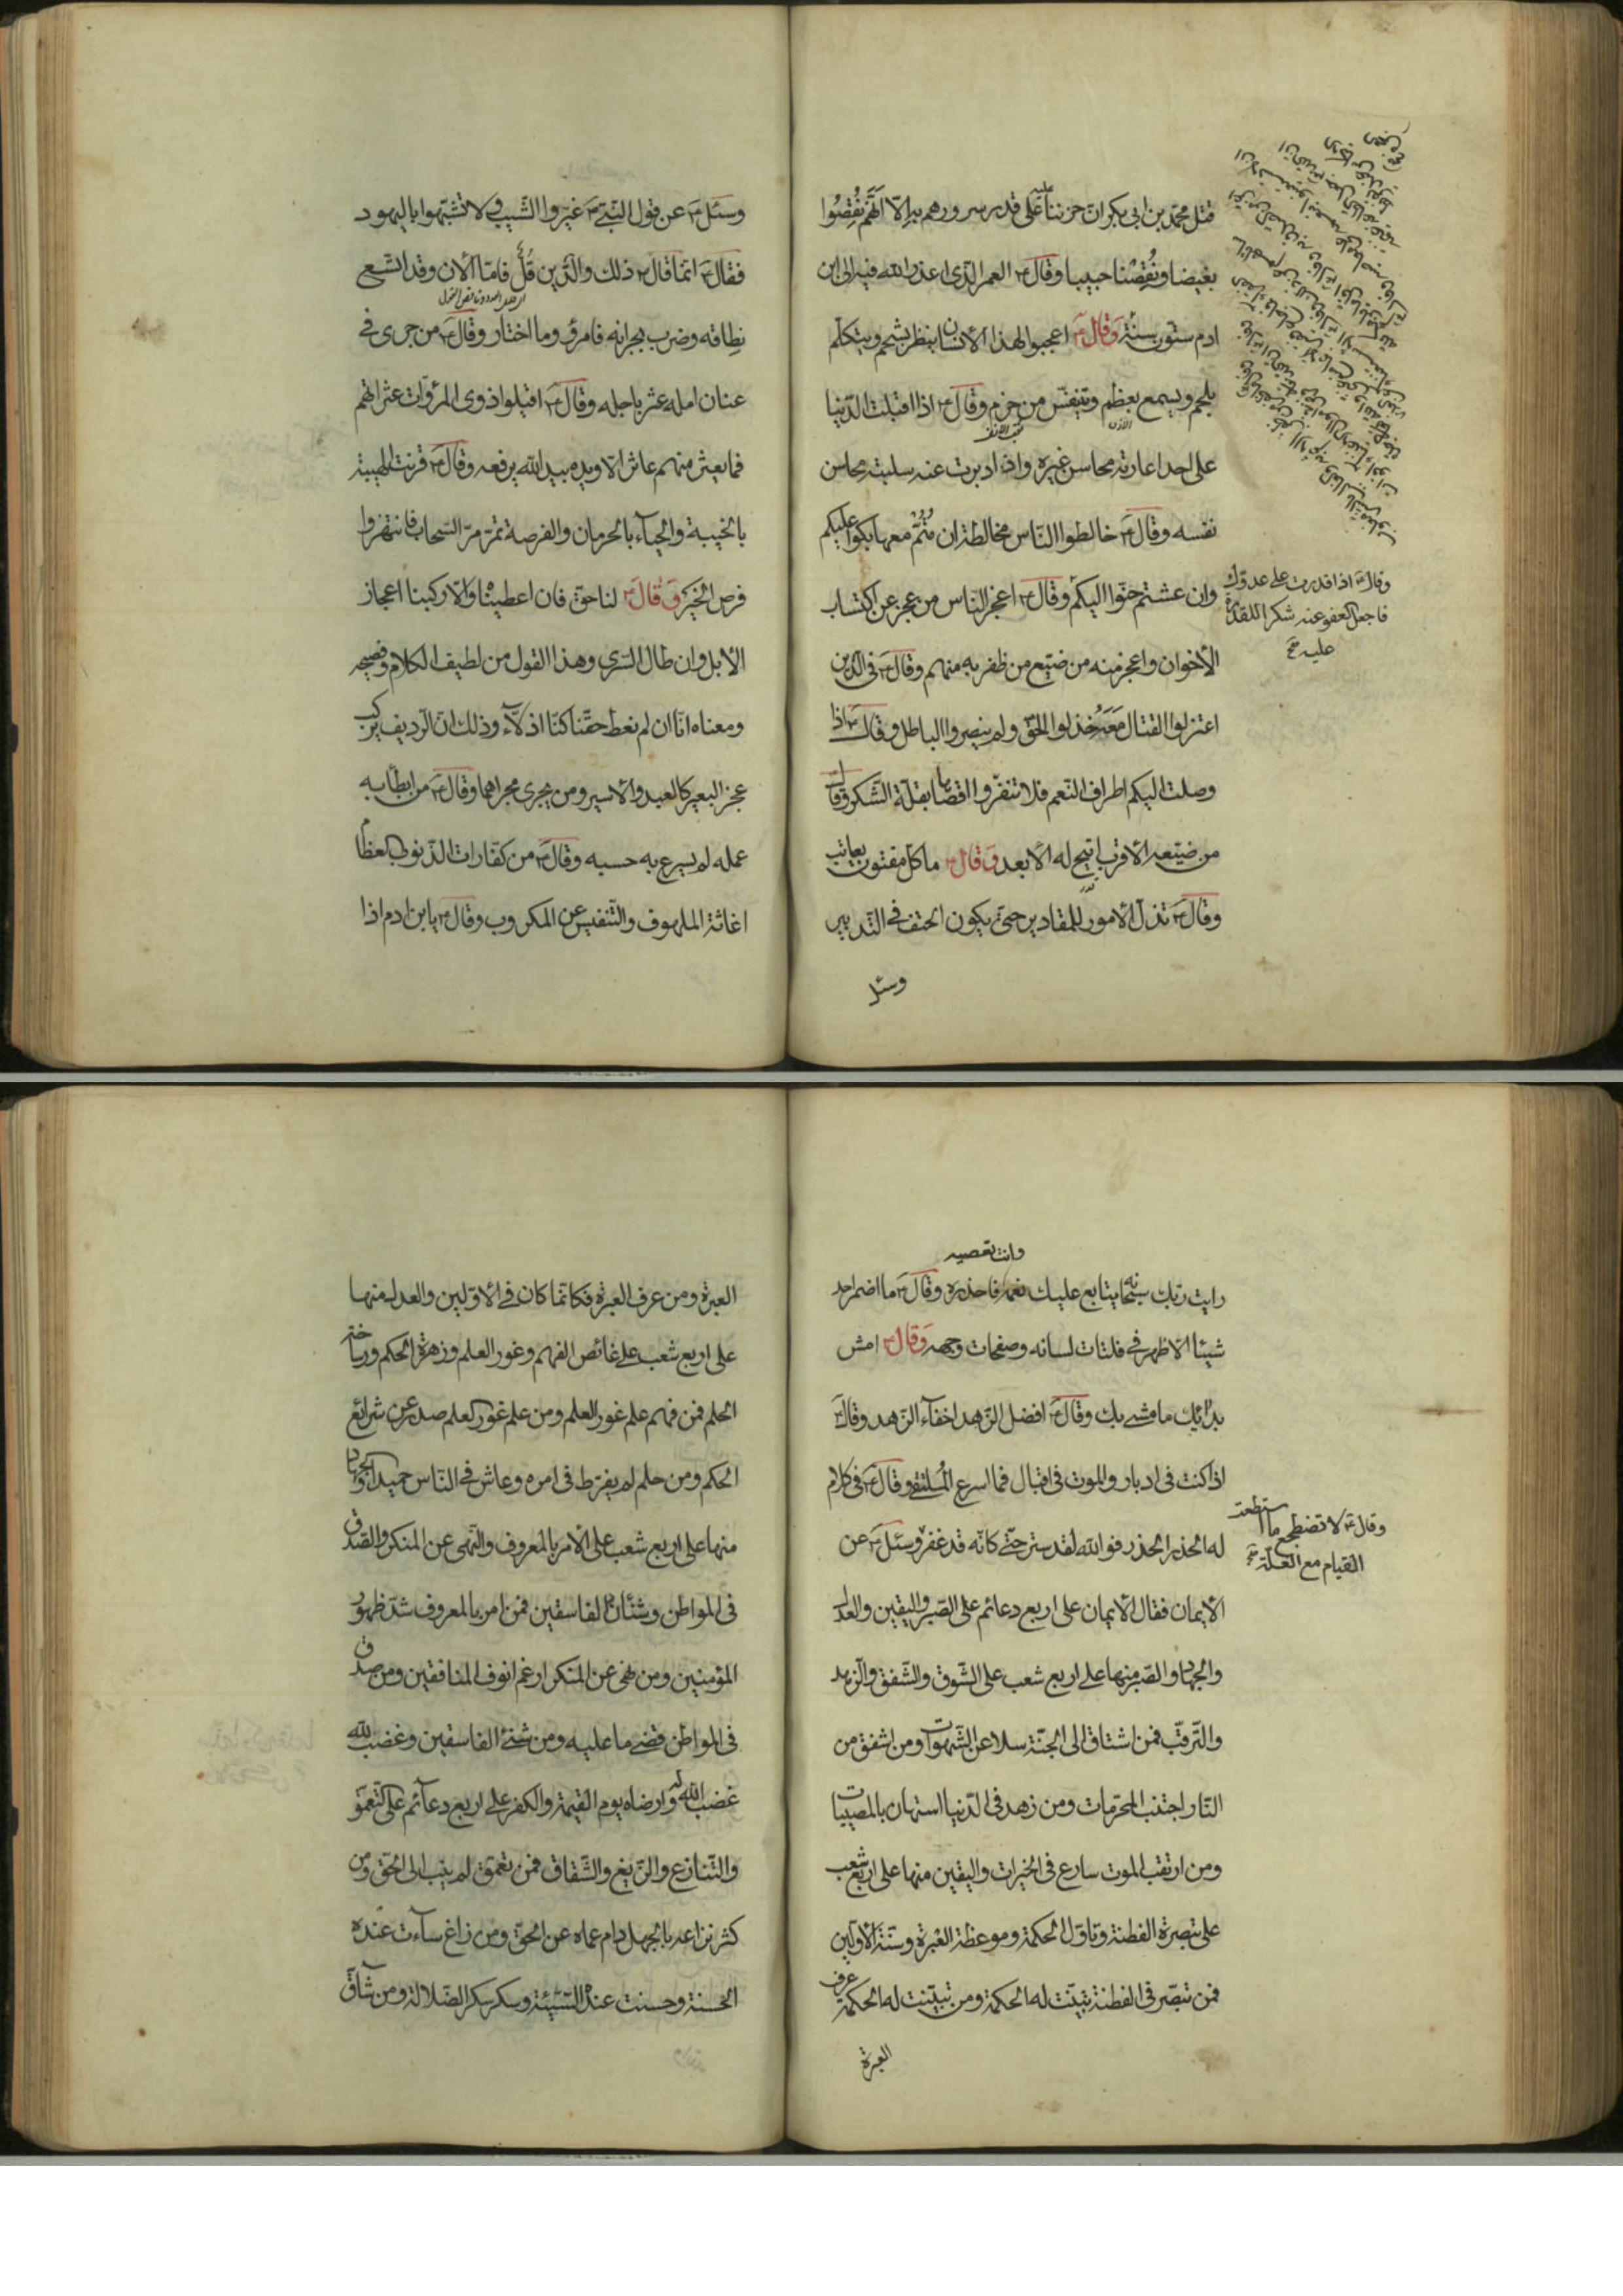 قتل محمد بن ابی بكر ان حزننا عليه علی قدر سرورهم به الا انهم نقصوا
بغيضا ونقصنا حبيبا وقال ع العمر الذی اعذر الله فيه الی ابن
ادم ستون سنة وقال ع اعجبوا لهذا الانسان ينظر بشحم ويتكلم
بلحم ويسمع بعظم ويتنفس من خرم وقال ع اذا اقبلت الدنيا
علی احد اعارته محاسن غيره واذا ادبرت عنه سلبته محاسن
نفسه وقال ع خالطوا الناس مخالطة ان متم معها بكوا عليكم
وان عشتم حنوا اليكم وقال ع اعجز الناس من عجز عن اكتساب
الاخوان واعجز منه من ضيع من ظفر به منهم وقال ع فی الذين
اعتزلوا القتال معه خذلوا الحق ولم ينصروا الباطل وقال ع اذا
وصلت اليكم اطراف النعم فلا تنفروا اقصاها بقلة الشكر وقال ع
من ضيعه الاقرب اتيح له الابعد وقال ع ما كل مفتون يعاتب
وقال ع تذل الامور للمقادير حتی يكون الحتف فی التدبير
وسئل
وقال ع اذا قدرت علی عدوك
فاجعل العفو عنه شكرا للقدرة
عليه صح
وسئل ع عن قول النبی ص غيروا الشيب ولا تشبهوا باليهود
فقال ع انما قال ص ذلك والدين قل فاما الان وقد اتسع
نطاقه وضرب بجرانه فامرؤ وما اختار وقال ع من جری فی
عنان امله عثر باجله وقال ع اقيلوا ذوی المروات عثراتهم
فما يعثر منهم عاثر الا ويده بيد الله يرفعه وقال ع قرنت الهيبة
بالخيبة والحياء بالحرمان والفرصة تمر مر السحاب فانتهزوا
فرص الخير وقال ع لنا حق فان اعطيناه والا ركبنا اعجاز
الابل وان طال السری وهذا القول من لطيف الكلام وفصيحه
ومعناه انا ان لم نعط حقنا كنا اذلاء وذلك ان الرديف يركب
عجز البعير كالعبد والاسير ومن يجری مجراهما وقال ع من ابطأ به
عمله لم يسرع به حسبه وقال ع من كفارات الذنوب العظام
اغاثة الملهوف والتنفيس عن المكروب وقال ع يا بن ادم اذا
وانت تعصيه
رايت ربك سبحانه يتابع عليك نعمه فاحذره وقال ع ما اضمر احد
شيئا الا ظهر فی فلتات لسانه وصفحات وجهه وقال ع امش
بدائك ما مشی بك وقال ع افضل الزهد اخفاء الزهد وقال ع
اذا كنت فی ادبار والموت فی اقبال فما اسرع الملتقی وقال ع فی كلام
له الحذر الحذر فوالله لقد ستر حتی كانه قد غفر وسئل ع عن
الايمان فقال الايمان علی اربع دعائم علی الصبر واليقين والعدل
والجهاد والصبر منها علی اربع شعب علی الشوق والشفق والزهد
والترقب فمن اشتاق الی الجنة سلا عن الشهوات ومن اشفق من
النار اجتنب المحرمات ومن زهد فی الدنيا استهان بالمصيبات
ومن ارتقب الموت سارع فی الخيرات واليقين منها علی اربع شعب
علی تبصرة الفطنة وتاول الحكمة وموعظة العبرة وسنة الاولين
فمن تبصر فی الفطنة تبينت له الحكمة ومن تبينت له الحكمة عرف
العبرة
وقال ع لا تضطجع ما استطعت
القيام مع العلة صح
العبرة ومن عرف العبرة فكانما كان فی الاولين والعدل منها
علی اربع شعب علی غائص الفهم وغور العلم وزهرة الحكم ورساخة
الحلم فمن فهم علم غور العلم ومن علم غور العلم صدر عن شرائع
الحكم ومن حلم لم يفرط فی امره وعاش فی الناس حميدا والجهاد
منها علی اربع شعب علی الامر بالمعروف والنهی عن المنكر والصدق
فی المواطن وشنآن الفاسقين فمن امر بالمعروف شد ظهور
المؤمنين ومن نهی عن المنكر ارغم انوف المنافقين ومن صدق
فی المواطن قضی ما عليه ومن شنئ الفاسقين وغضب لله
غضب الله له وارضاه يوم القيمة والكفر علی اربع دعائم علی التعمق
والتنازع والزيغ والشقاق فمن تعمق لم ينب الی الحق ومن
كثر نزاعه بالجهل دام عماه عن الحق ومن زاغ ساءت عنده
الحسنة وحسنت عنده السيئة وسكر سكر الضلالة ومن شاق